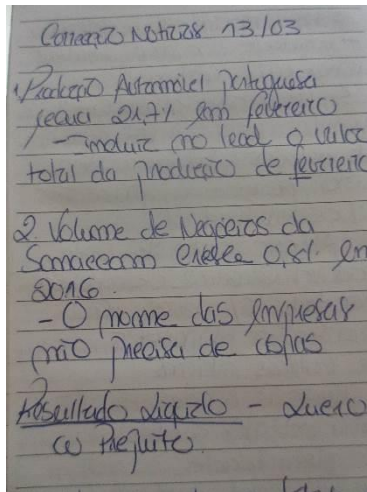 Correcção Notícias 13/03
1. Produção Automóvel portuguesa
recua 21,7% em fevereiro
- induir no lead o valor
total da produção de fevereiro
2. Volume de Negócios da
Sonaecom cresce 0,8% em
2016.
- O nome das empresas
não precisa de aspas
Resultado Líquido - Lucro
ou Prejuízo